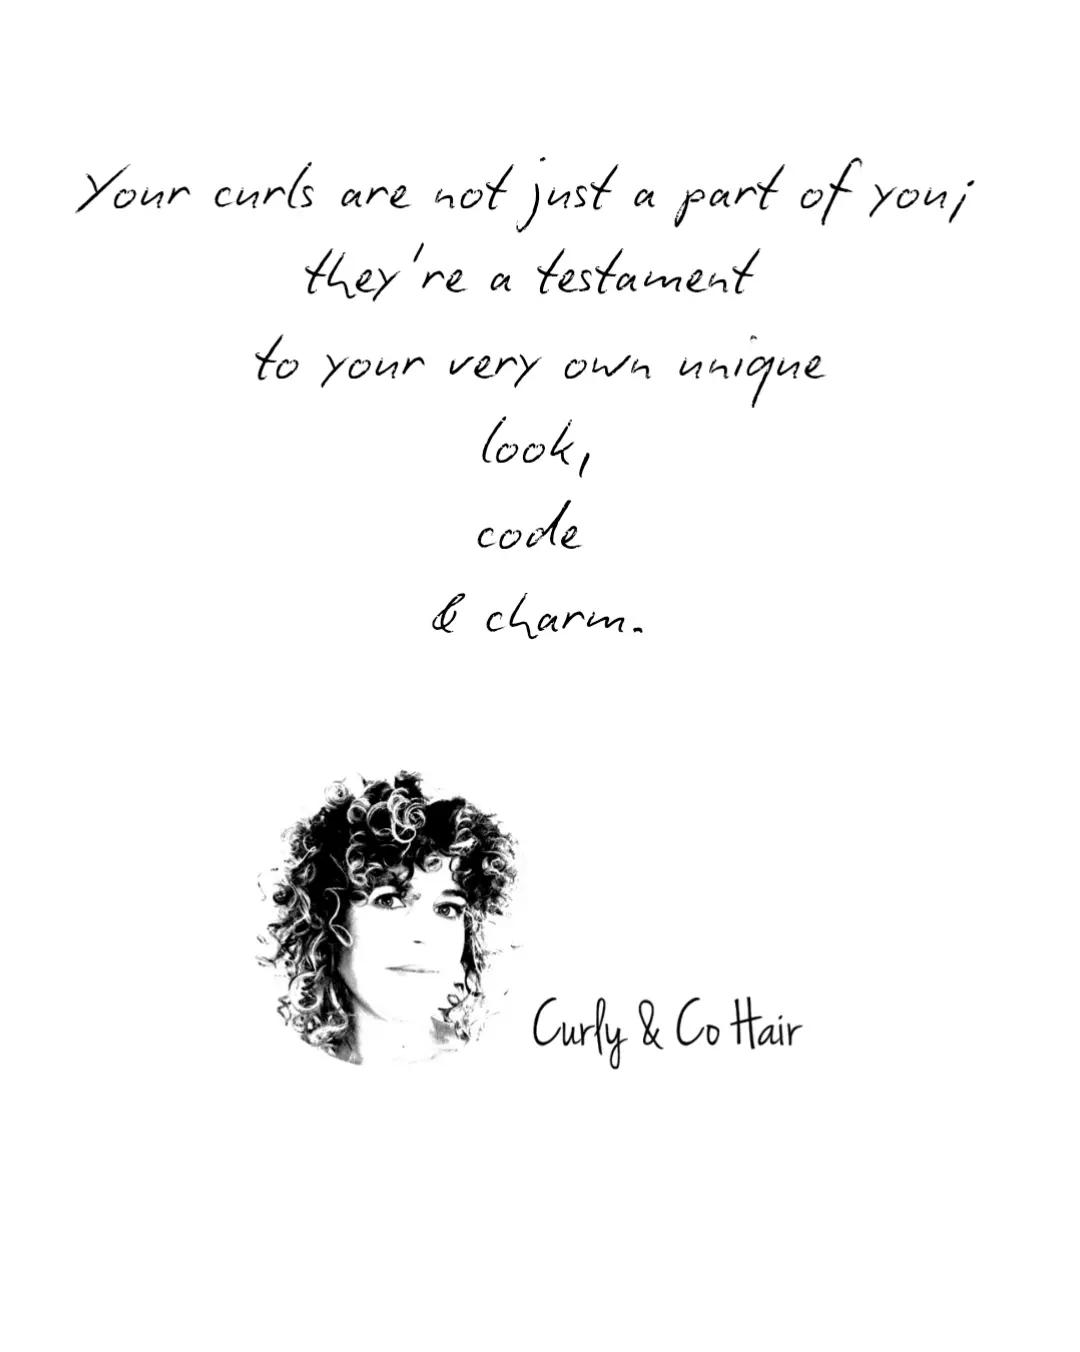 Your curls are not just a part of you;
they're a testament
to your very own unique
look,
code
& charm.
Curly & Co Hair